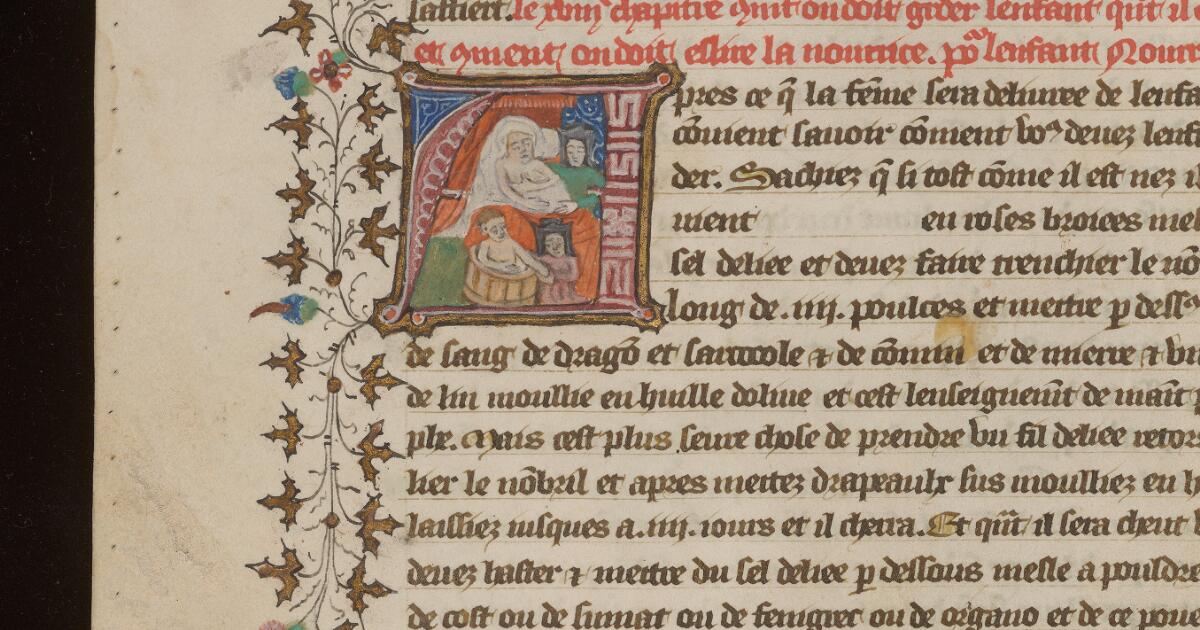 saisient. le xviij chapitre 9mt on doit gder lenfant qũt il
et 9ment on doit eslire la nourrice. po᷑ lenfant Nourr
Apres ce q̃ la fẽme sera deliuree de lenfa
cõuient sauoir cõment voꝰ deuez lenf
der. Sachiez q̃ si tost cõme il est nez il
uient en roses broiees me
sel deliee et deuez faire trenchier le nõ
long de .iiij. poulces et mettre p dessꝰ
de sang de dragõ et sarcocole ⁊ de cõmin et de mierre ⁊ vn
de lin moullie en huille doliue et cest lenseignem̃t de maĩt
ple. Mais cest plus seure chose de prendre vn fil deliee retor
lier le nõbril et apres mettez drapeaulx sus moulliez en h
laissiez iusques a .iiij. iours et il cherra. Et qũt il sera cheut
deuez haster ⁊ mettre du sel deliee p dessous mesle a pouldre
de cost ou de sumat ou de fenigrec ou de organo et de ce poul